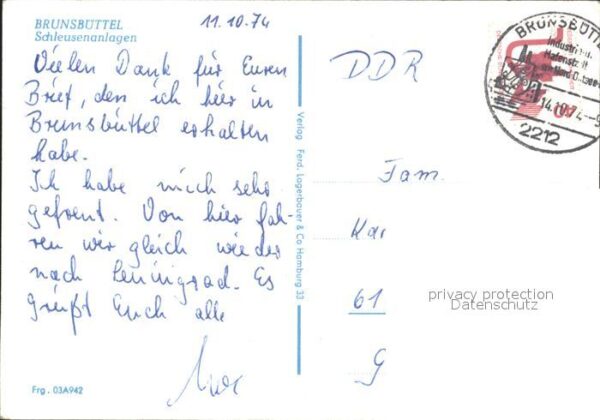 BRUNSBÜTTEL
Schleusenanlagen
11.10.74
Vielen Dank für Euren
Brief, den ich hier in
Brunsbüttel erhalten
habe.
Ich habe mich sehr
gefreut. Von hier fah-
ren wir gleich wieder
nach Leningrad. Es
grüßt Euch alle
Frg. 03A942
Verlag Ferd. Lagerbauer & Co Hamburg 33
DDR
Fam.
Kar
61
G
BRUNSBÜTTE
Industrie-u.
Hafenstadt
am Nord-Ostsee-
14.10.74-9
2212
privacy protection
Datenschutz